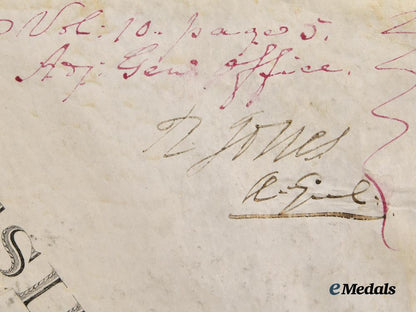 Vol: 10. page 5.
Adj: Genl office.
R Jones
A. Genl.
SI
eMedals